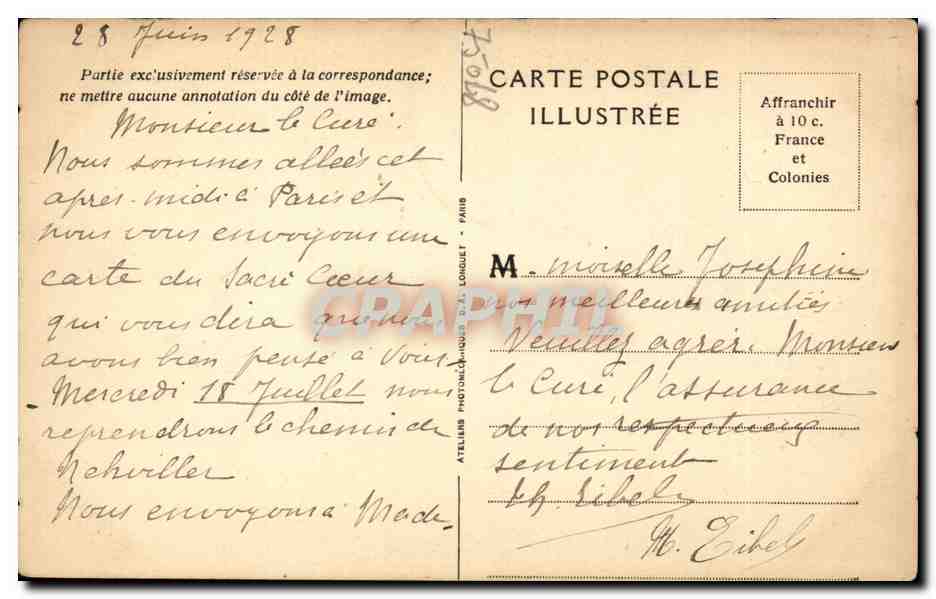 28 Juin 1928
Partie exc'usivement réservée à la correspondance;
ne mettre aucune annotation du côté de l'image.
Monsieur le Curé.
Nous sommes allées cet
après-midi à Paris et
nous vous envoyons une
carte du Sacré Coeur
qui vous dira que nous
avons bien pensé à vous.
Mercredi 18 Juillet nous
reprendrons le chemin de
Nehviller
Nous envoyons à Made-
ATELIERS PHOTOMÉCANIQUES D.A. LONGUET - PARIS
CARTE POSTALE
ILLUSTRÉE
Affranchir
à 10 c.
France
et
Colonies
M-moiselle Joséphine
nos meilleures amitiés
Veuillez agréer, Monsieur
le Curé, l'assurance
de nos respectueux
sentiment
M. Eibel
CRAPHIL